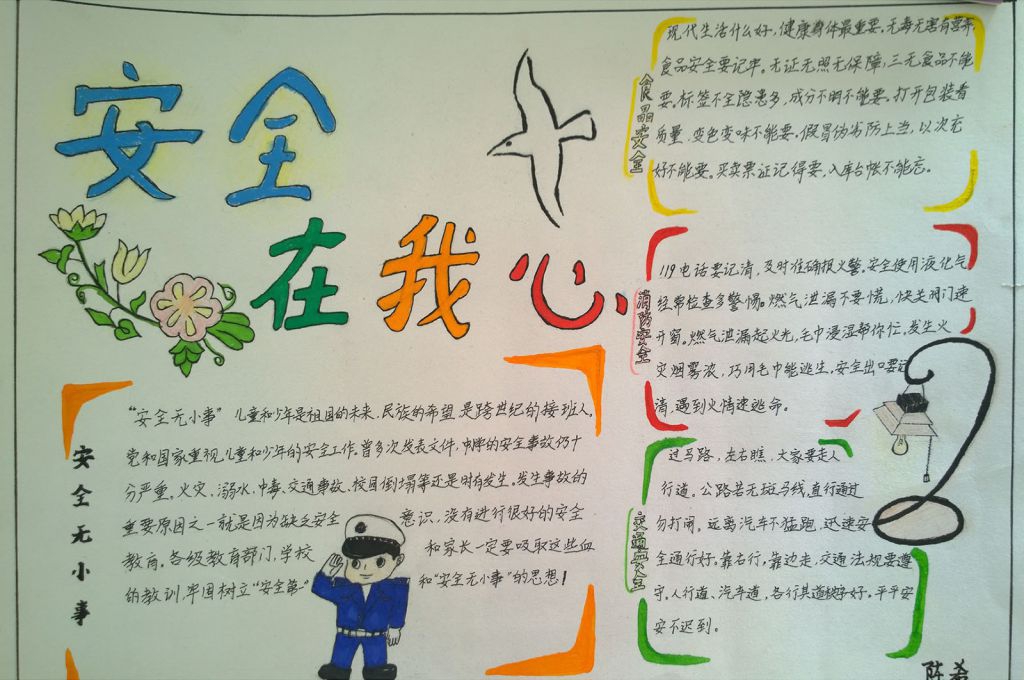 安全
在我心
安全无小事
“安全无小事”儿童和少年是祖国的未来、民族的希望、是跨世纪的接班人。
党和国家重视儿童和少年的安全工作。曾多次发表文件,中牌的安全事故仍十
分严重。火灾、溺水、中毒、交通事故、校园倒塌等还是时有发生。发生事故的
重要原因之一就是因为缺乏安全意识,没有进行很好的安全
教育。各级教育部门、学校和家长一定要吸取这些血
的教训,牢固树立“安全第一”和“安全无小事”的思想!
食品安全
现代生活什么好,健康身体最重要。无毒无害有营养,
食品安全要记牢。无证无照无保障,三无食品不能
要。标签不全隐患多,成分不明不能要。打开包装看
质量,变色变味不能要。假冒伪劣防上当,以次充
好不能要。买卖票证记得要,入库台帐不能忘。
消防安全
119电话要记清,及时准确报火警。安全使用液化气
经常检查多警惕。燃气泄漏不要慌,快关阀门速
开窗。燃气泄漏起火光,毛巾浸湿帮你忙。发生火
灾烟雾浓,巧用毛巾能逃生。安全出口要记
清,遇到火情速逃命。
交通安全
过马路,左右瞧,大家要走人
行道。公路若无斑马线,直行通过
勿打闹。远离汽车不猛跑,迅速安
全通行好。靠右行,靠边走,交通法规要遵
守。人行道、汽车道,各行其道秩序好。平平安
安不迟到。
陈希